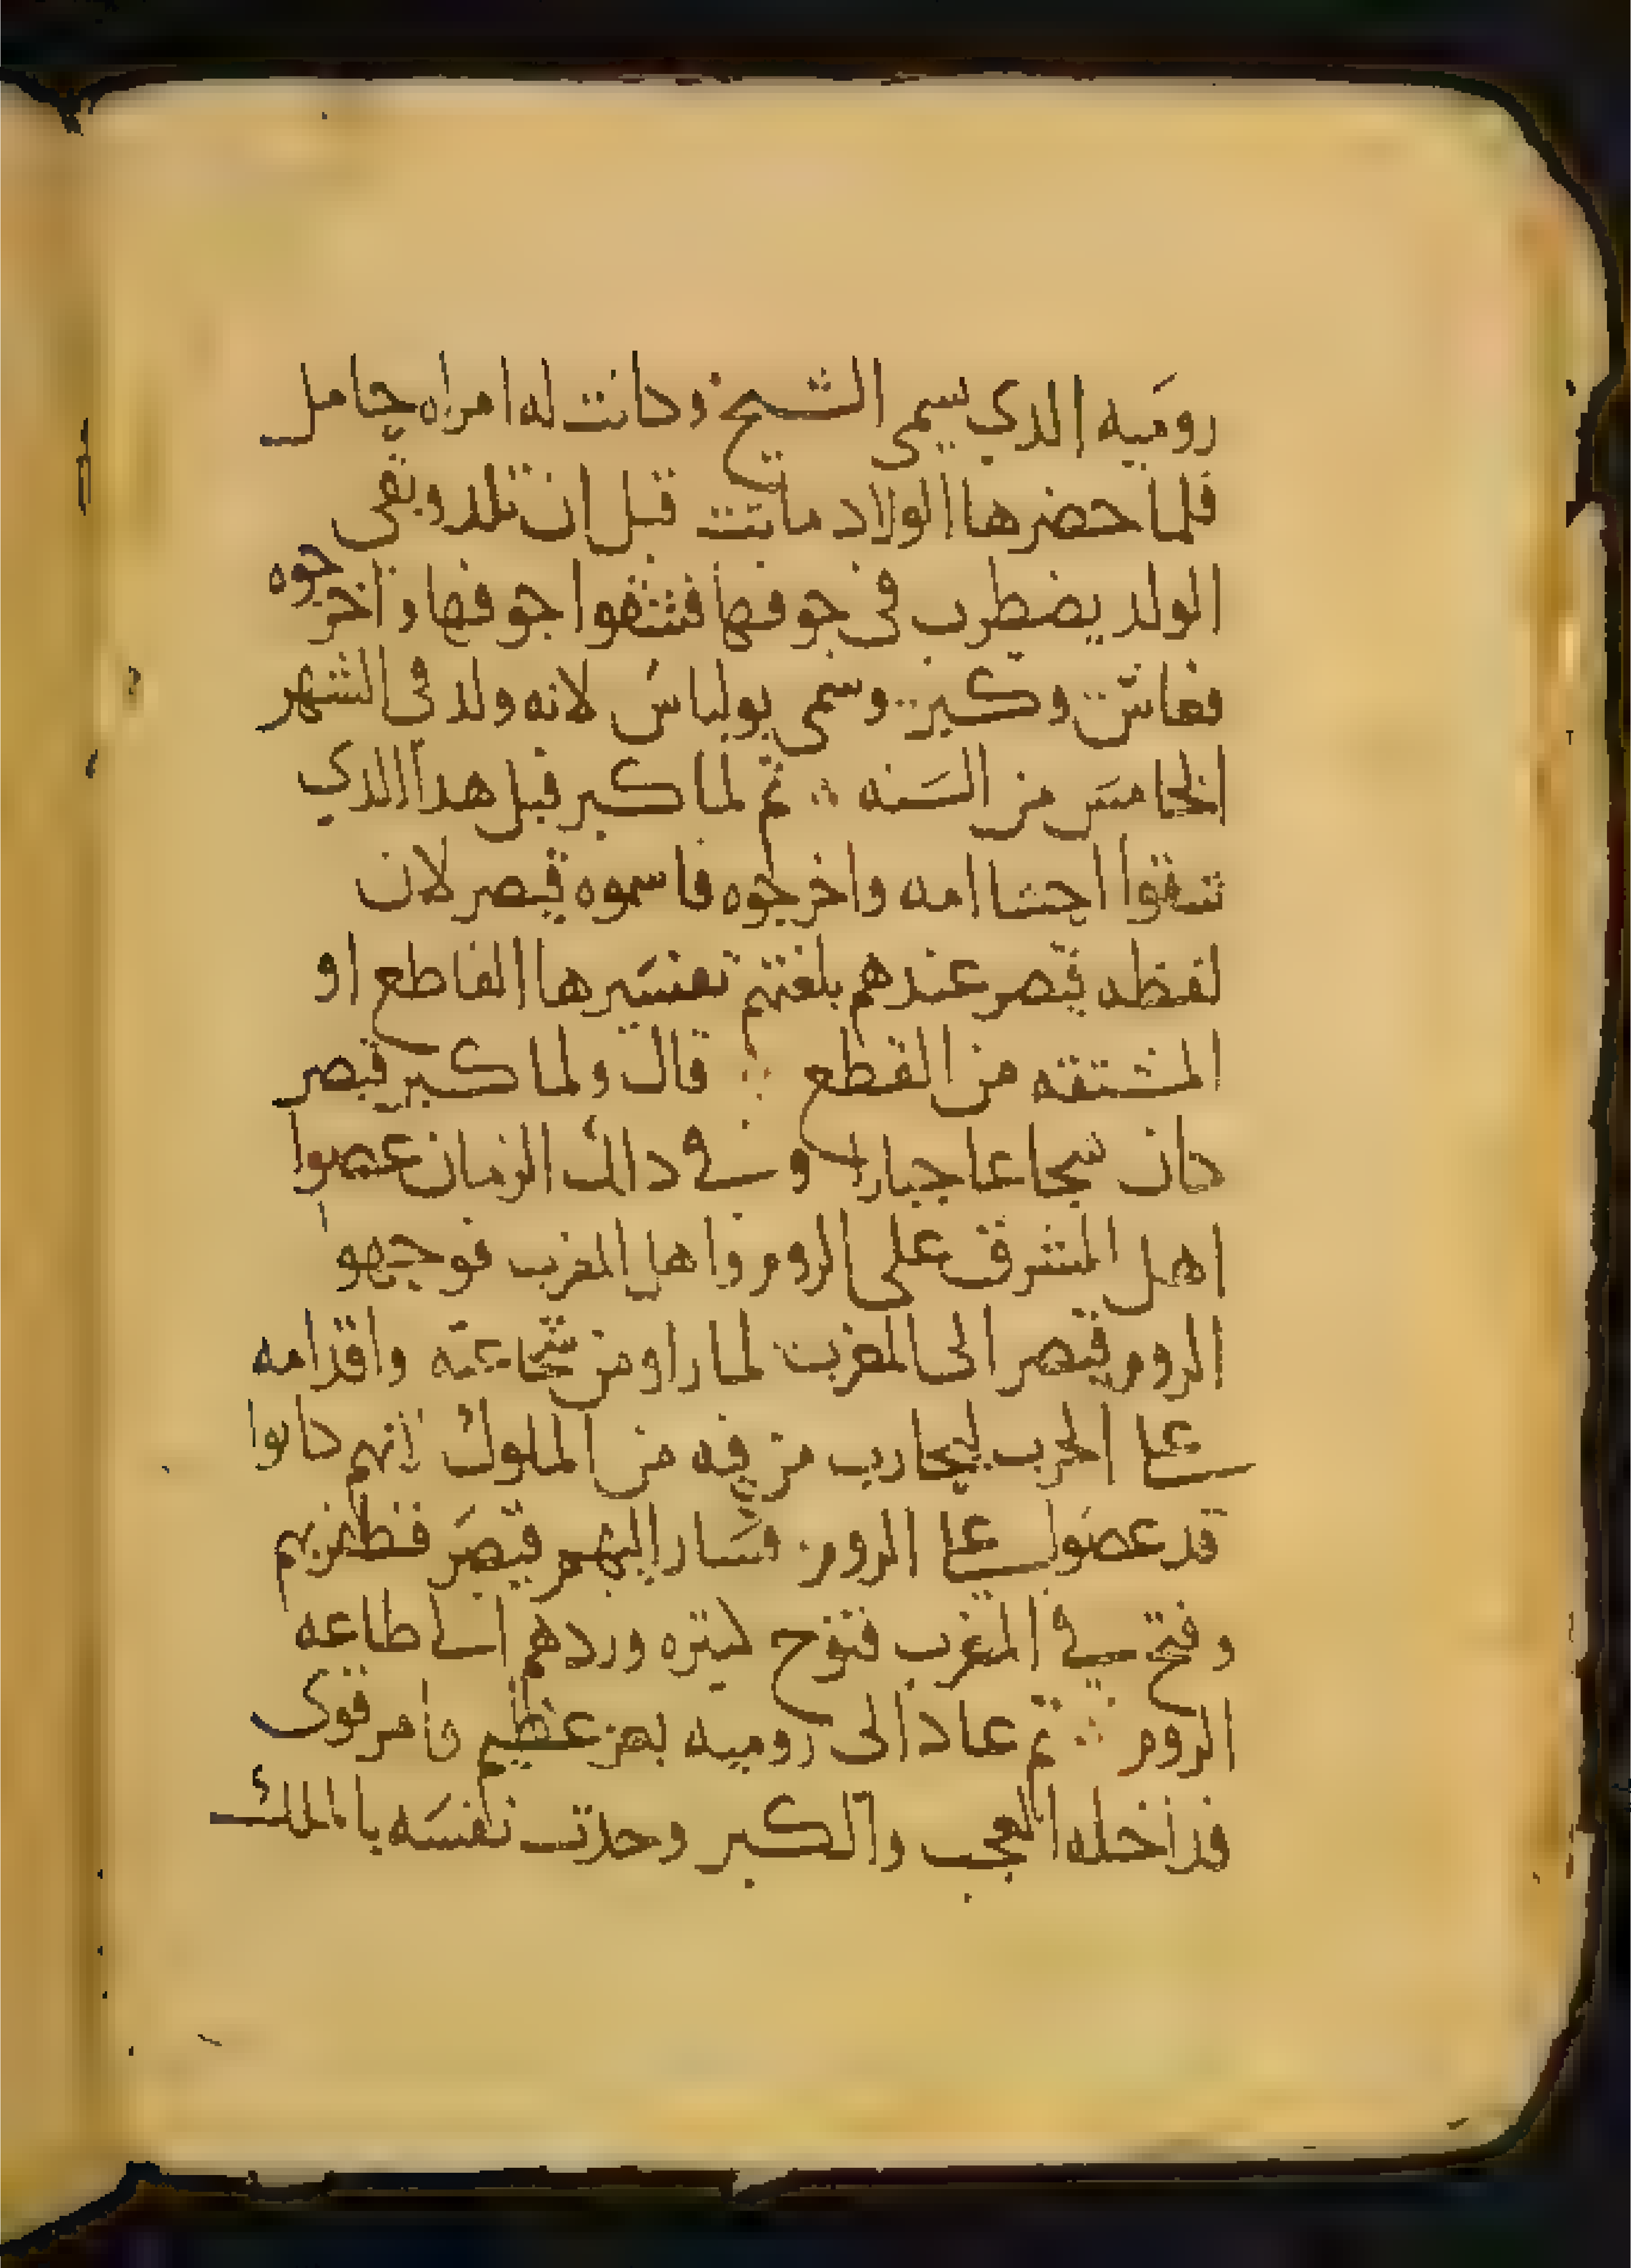 روميه الدي يسمى الشيخ وكانت له امراه حامل
فلما حضرها الولاد ماتت قبل ان تلد وبقى
الولد يضطرب فى جوفها فشقوا جوفها واخرجوه
فعاش وكبر وسمى يولياس لانه ولد فى الشهر
الخامس من السنه ثم لما كبر قيل هدا الدي
شقوا احشا امه واخرجوه فاسموه قيصر لان
لفظه قيصر عندهم بلغتهم تفسيرها القاطع او
المشتقه من القطع قال ولما كبر قيصر
كان شجاعا جبارا وفي دالك الزمان عصوا
اهل المشرق على الروم واهل المغرب فوجهوا
الروم قيصر الى المغرب لما راو من شجاعته واقدامه
على الحرب ليحارب من فيه من الملوك انهم كانوا
قد عصوا على الروم فسار اليهم قيصر فظفر بهم
وفتح في المغرب فتوح كتيره وردهم الى طاعه
الروم ثم عاد الى روميه بعز عظيم وامر قوى
فداخله العجب والكبر وحدتت نفسه بالملك